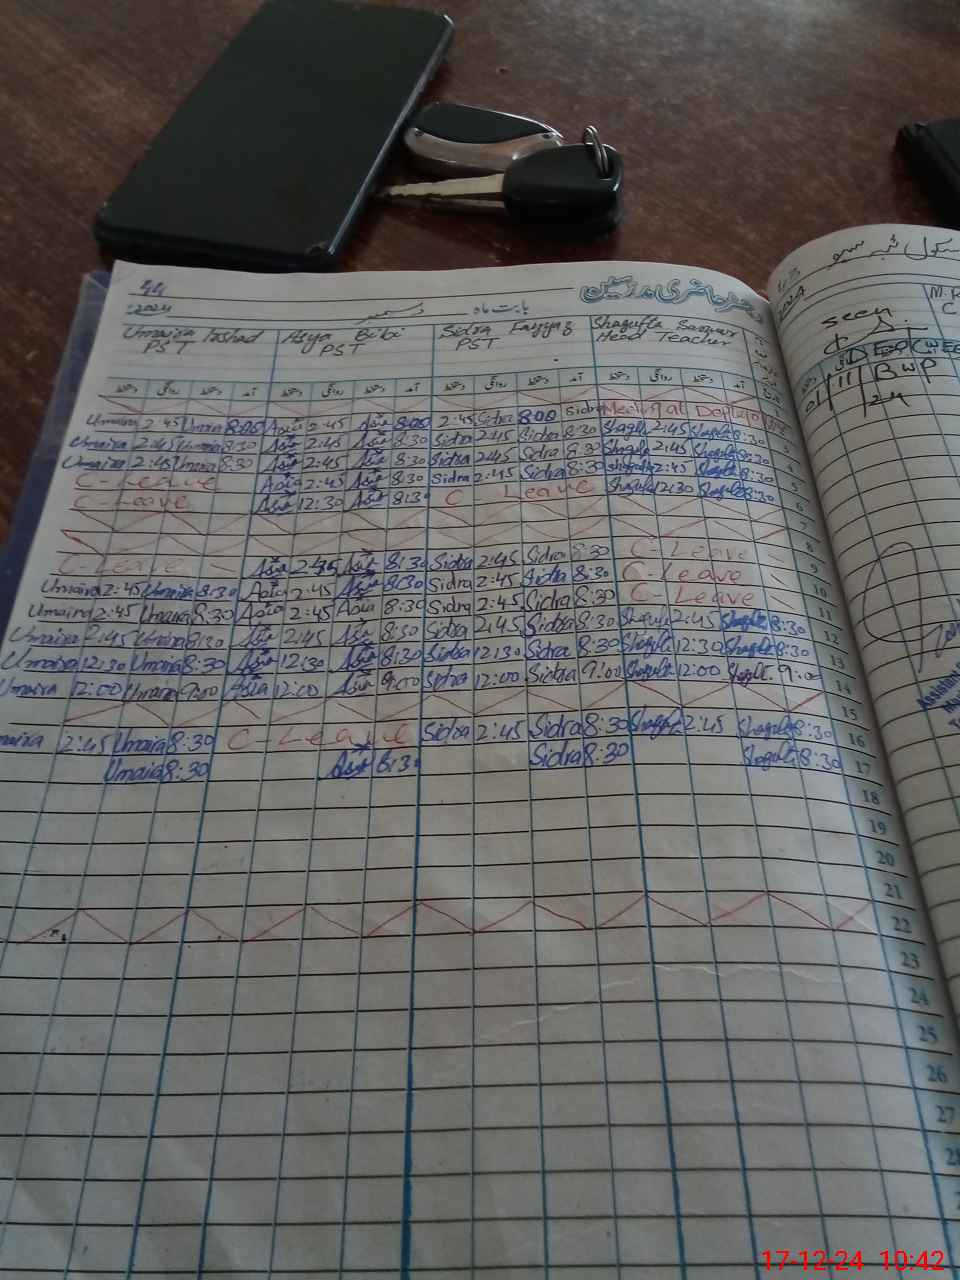 44
رجسٹر حاضری مدرسین
بابت ماہ دسمبر 2024
Umaira Irshad PST Asya Bibi PST Sidra Fayyaz PST Shagufta Sarwar Head Teacher
دستخط روانگی دستخط آمد دستخط روانگی دستخط آمد دستخط روانگی دستخط آمد دستخط روانگی دستخط آمد
Umaira 2:45 Umaira 8:00 Asia 2:45 Asia 8:00 2:45 Sidra 8:00 Sidra Meeting at
Umaira 2:45 Umaira 8:30 Asia 2:45 Asia 8:30 Sidra 2:45 Sidra 8:30 Shagufta 2:45 Shagufta 8:30
Umaira 2:45 Umaira 8:30 Asia 2:45 Asia 8:30 Sidra 2:45 Sidra 8:30 Shagufta 2:45 Shagufta 8:30 4
C-Leave Asia 2:45 Asia 8:30 Sidra 2:45 Sidra 8:30 Shagufta 2:45 Shagufta 8:30 5
C-Leave Asia 12:30 Asia 8:30 C Leave Shagufta 12:30 Shagufta 8:30 6
7
8
C-Leave Asia 2:45 Asia 8:30 Sidra 2:45 Sidra 8:30 C-Leave 9
Umaira 2:45 Umaira 8:30 Asia 2:45 Asia 8:30 Sidra 2:45 Sidra 8:30 C-Leave 10
Umaira 2:45 Umaira 8:30 Asia 2:45 Asia 8:30 Sidra 2:45 Sidra 8:30 C-Leave 11
Umaira 2:45 Umaira 8:30 Asia 2:45 Asia 8:30 Sidra 2:45 Sidra 8:30 Shagufta 2:45 Shagufta 8:30 12
Umaira 12:30 Umaira 8:30 Asia 12:30 Asia 8:30 Sidra 12:30 Sidra 8:30 Shagufta 12:30 Shagufta 8:30 13
Umaira 12:00 Umaira 9:00 Asia 12:00 Asia 9:00 Sidra 12:00 Sidra 9:00 Shagufta 12:00 Shagufta 9:00 14
15
Umaira 2:45 Umaira 8:30 C-Leave Sidra 2:45 Sidra 8:30 Shagufta 2:45 Shagufta 8:30 16
Umaira 8:30 Asia 8:30 Sidra 8:30 Shagufta 8:30 17
18
19
20
21
22
23
24
25
26
27
28
سکول
2024
seen
BWP
17-12-24 10:42